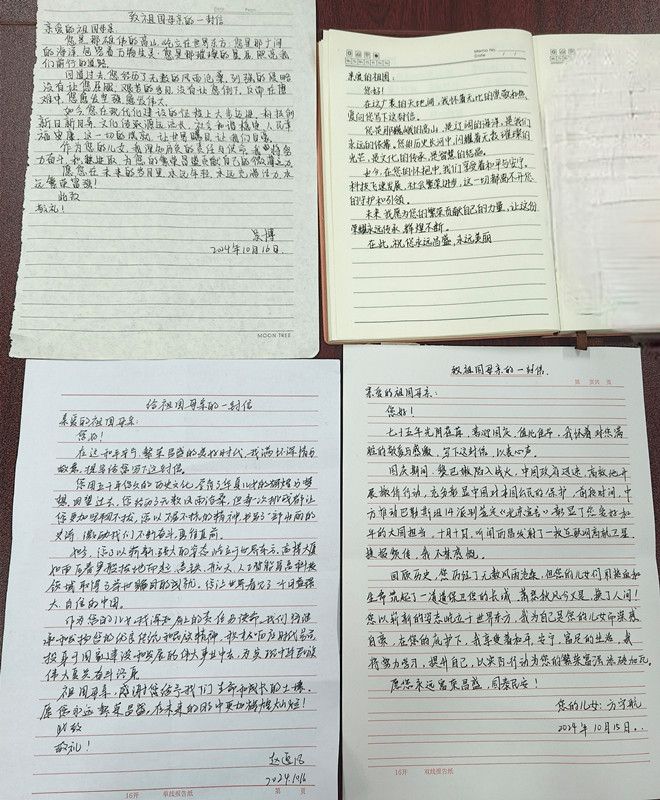 致祖国母亲的一封信
亲爱的祖国母亲:
您是那雄伟的高山,屹立在世界东方;您是那广阔
的海洋,包容着万物生灵;您是那璀璨的星辰,照亮我
们前行的道路。
回首过去,您经历了无数的风雨沧桑,列强的侵略
没有让您屈服,艰苦的岁月没有让您倒下,反而在磨
难中,您愈发坚强,愈发伟大。
如今,您在现代化建设的征程上大步迈进,科技创
新日新月异,文化传承源远流长,社会和谐稳定,人民幸
福安康,这一切的成就,让世界瞩目,让我们自豪。
作为您的儿女,我深知肩负的责任与使命,我
力奋斗,积极进取,为您的繁荣昌盛贡献自己的微薄之力
愿您在未来的岁月里,永远年轻,永远充满活力,永
远繁荣富强!
此致
敬礼!
吴博
2024年10月16日
MOON TREE
Memo No.
亲爱的祖国:
您好!
在这广袤的天地间,我怀着无比的崇敬和热
爱,向您写下这封信。
您是那巍峨的高山,是辽阔的海洋,是我们
永远的依靠。您的历史长河中,闪耀着无数璀璨的
光芒,是文化的传承,是智慧的结晶。
如今,在您的怀抱中,我们享受着和平与安宁。
科技飞速发展,社会繁荣进步,这一切都离不开您
的守护和引领。
未来,我愿为您的繁荣贡献自己的力量,让这份
荣耀永远传承,辉煌不断。
在此,祝您永远昌盛,永远美丽
给祖国母亲的一封信
亲爱的祖国母亲:
您好!
在这和平与繁荣昌盛的美好时代,我满怀深情与
敬意,提笔给您写下这封信。
您用五千年悠久的历史文化,孕育了华夏儿女的辉煌与梦
想,回望过去,您经历了无数风雨沧桑,但每一次挑战都让
您更加坚韧不拔,您以不屈不挠的精神,书写了一部壮丽的
史诗,激励我们不断奋勇直前。
如今,您已以崭新、强大的姿态屹立于世界东方,
领域取得了举世瞩目的成就,您让世界看见了一个日益强
大、自信的中国。
作为您的儿女,我深知肩上的责任与使命,我们将继
承和发扬您的优良传统和民族精神,
投身于国家建设和发展的伟大事业中去,为实现中华民族
伟大复兴奋斗终身
祖国母亲,感谢您给予我们生命和成长的土壤,
愿您永远繁荣昌盛,在未来的日子中更加辉煌灿烂!
此致
敬礼!
2024.10.16
16开 单线报告纸 第 页
致祖国母亲的一封信
第 页共 页
亲爱的祖国母亲:
您好!
七十五年光阴荏苒,喜迎国庆,值此佳节,我怀着对您满
腔的敬意与感激,写下这封信,以表心声。
国庆期间,黎巴嫩陷入战火,中国政府迅速、高效地开
展撤侨行动,充分彰显中国对本国公民的保护,
都显了您爱好和
平的大国担当,十月十日,听闻西昌发射了一枚互联网高轨卫星,
捷报频传,我不禁感慨。
回眸历史,您历经了无数风雨沧桑,但您的儿女们用热血和
生命筑起了一道道保卫您的长城,萧瑟秋风今又是,换了人间!
您以崭新的姿态屹立于世界东方,我为自己是您的儿女而深感
自豪,在您的庇护下,我享受着和平、安宁、富足的生活,我
将努力学习,提升自己,以实际行动为您的繁荣富强添砖加瓦。
愿您永远富荣昌盛,国泰民安!
您的儿女:方守航
2024年10月15日
16开 双线报告纸